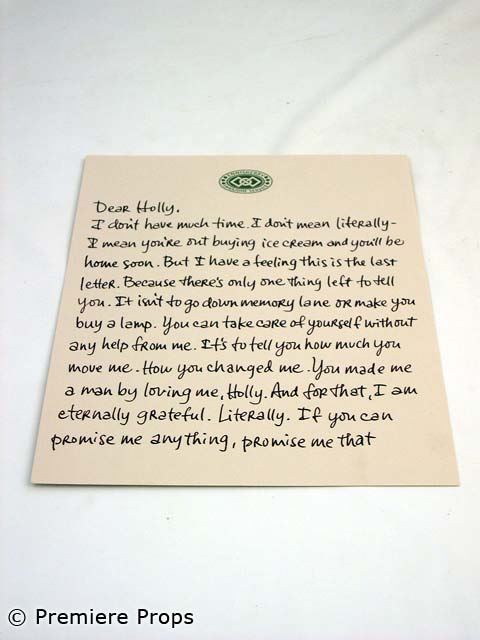 Dear Holly.
I don't have much time. I don't mean literally-
I mean you're out buying ice cream and you'll be
home soon. But I have a feeling this is the last
letter. Because there's only one thing left to tell
you. It isn't to go down memory lane or make you
buy a lamp. You can take care of yourself without
any help from me. It's to tell you how much you
move me. How you changed me. You made me
a man by loving me, Holly. And for that, I am
eternally grateful. Literally. If you can
promise me anything, promise me that
© Premiere Props